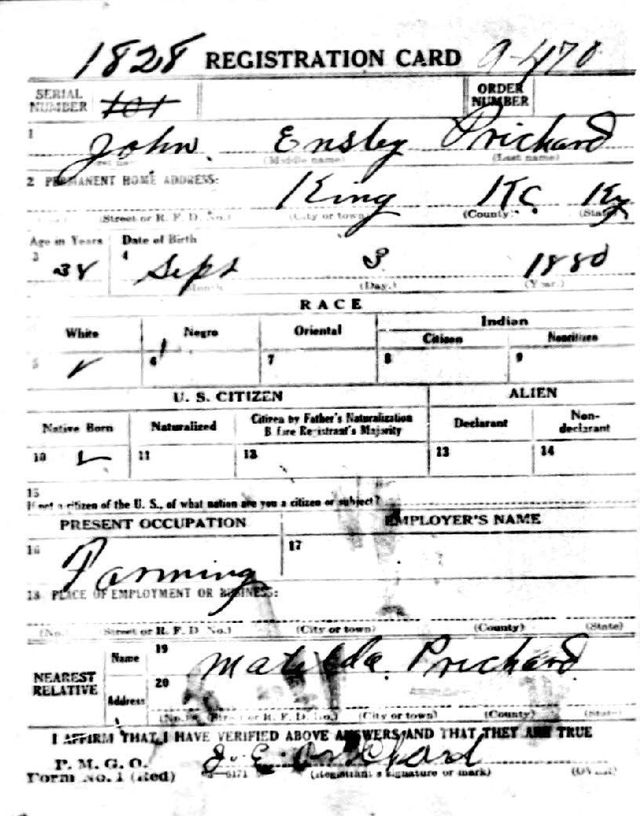 1828 REGISTRATION CARD A-470
SERIAL NUMBER 101 ORDER NUMBER
1 John Ensley Prichard
(Middle name) (Last name)
2 PERMANENT HOME ADDRESS:
King Ky
(Street or R. F. D. No.) (City or town) (County) (State)
Age in Years Date of Birth
3 38 4 Sept 3 1880
(Month) (Day.) (Year.)
RACE
White Negro Oriental Indian
Citizen Noncitizen
5 6 7 8 9
U. S. CITIZEN ALIEN
Native Born Naturalized Citizen by Father's Naturalization Before Registrant's Majority Declarant Non-declarant
10 11 12 13 14
15
If not a citizen of the U. S., of what nation are you a citizen or subject?
PRESENT OCCUPATION EMPLOYER'S NAME
16 Farming 17
18 PLACE OF EMPLOYMENT OR BUSINESS:
(No.) Street or R. F. D. No.) (City or town) (County) (State)
NEAREST RELATIVE Name 19 Matilda Prichard
Address 20
(No.) (Street or R. F. D. No.) (City or town) (County) (State)
I AFFIRM THAT I HAVE VERIFIED ABOVE ANSWERS AND THAT THEY ARE TRUE
P. M. G. O. J. E. Prichard
Form No. 1 (Red) 6171 (Registrant's signature or mark) (OVER)